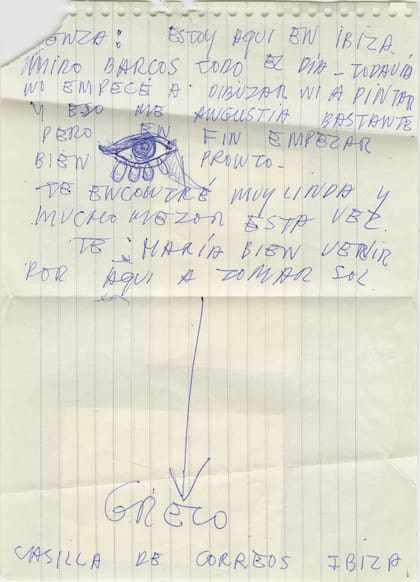 ENZA: ESTOY AQUI EN IBIZA
MIRO BARCOS TODO EL DÍA - TODAVÍA
NO EMPECE A DIBUZAR NI A PINTAR
Y ESO ME ANGUSTIA BASTANTE
PERO EN FIN EMPEZAR
BIEN PRONTO -
TE ENCONTRÉ MUY LINDA Y
MUCHO MEZOR ESTA VEZ.
TE HARÍA BIEN VENIR
POR AQUI A TOMAR SOL
GRECO
CASILLA DE CORREOS IBIZA.